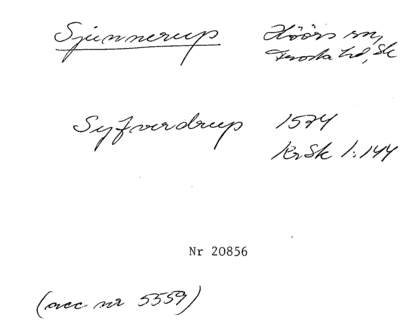 Sjunnerup Höörs sn,
Frosta hd, Sk
Syfverdrup 1574
KrSk 1:144
Nr 20856
(acc nr 5559)